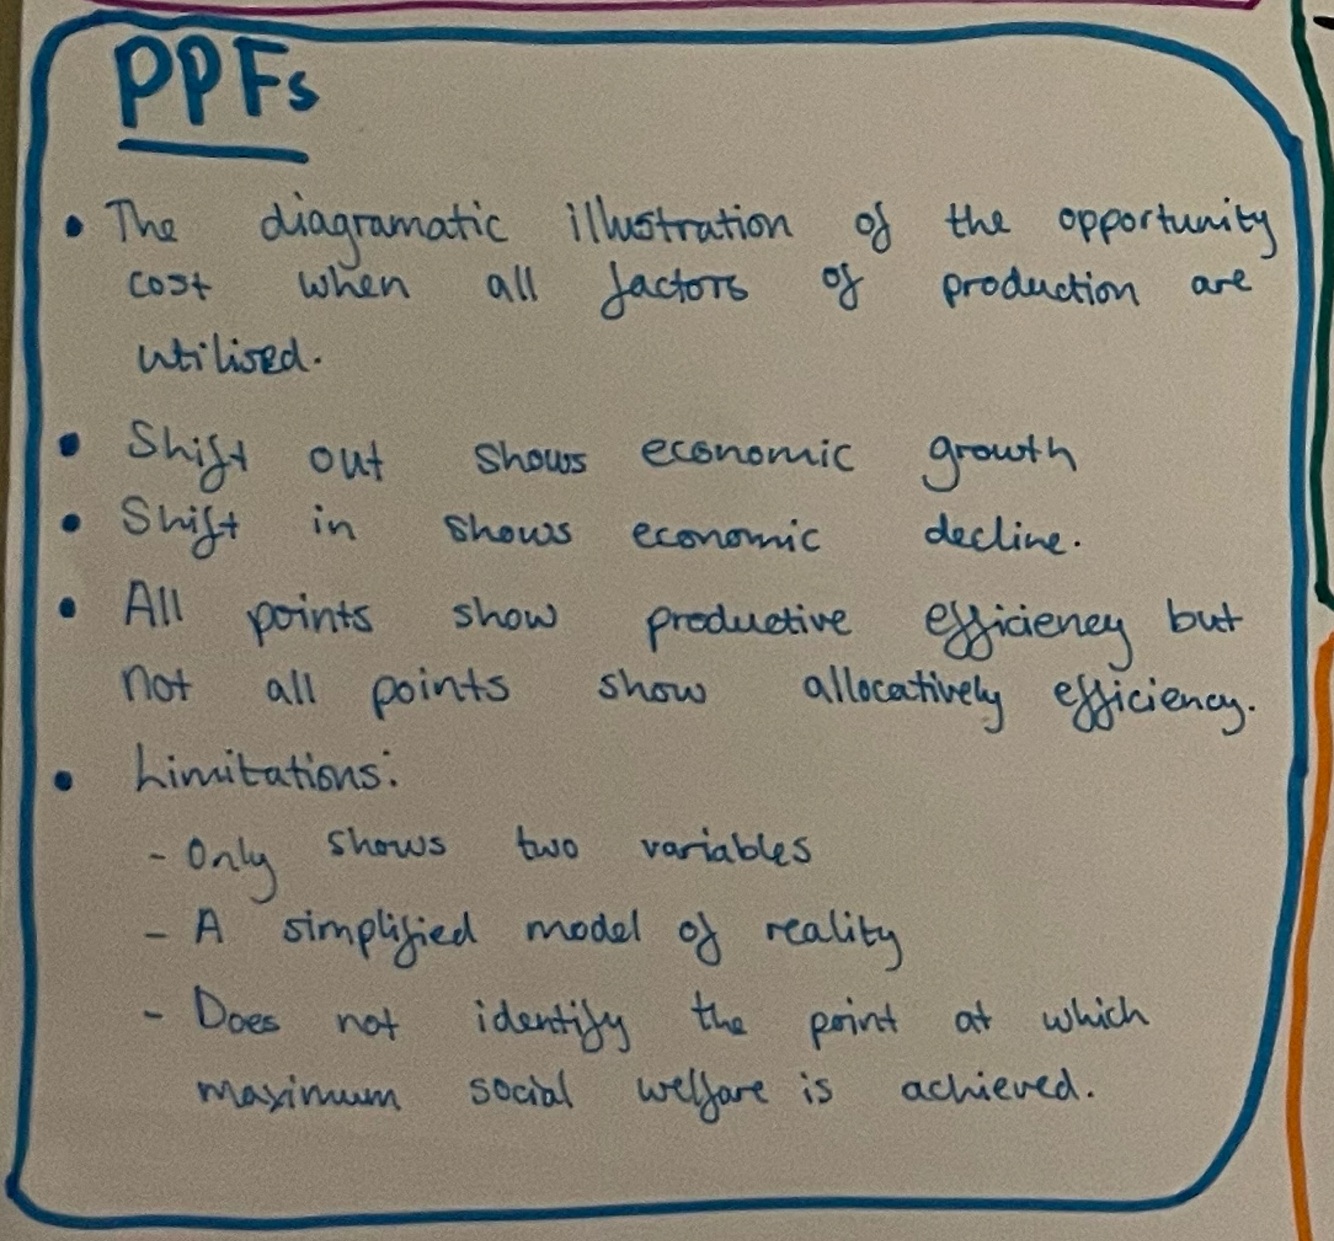 PPFs
• The diagramatic illustration of the opportunity
cost when all factors of production are
utilised.
• Shift out shows economic growth
• Shift in shows economic decline.
• All points show productive efficiency but
not all points show allocatively efficiency.
• Limitations:
- Only shows two variables
- A simplified model of reality
- Does not identify the point at which
maximum social welfare is achieved.